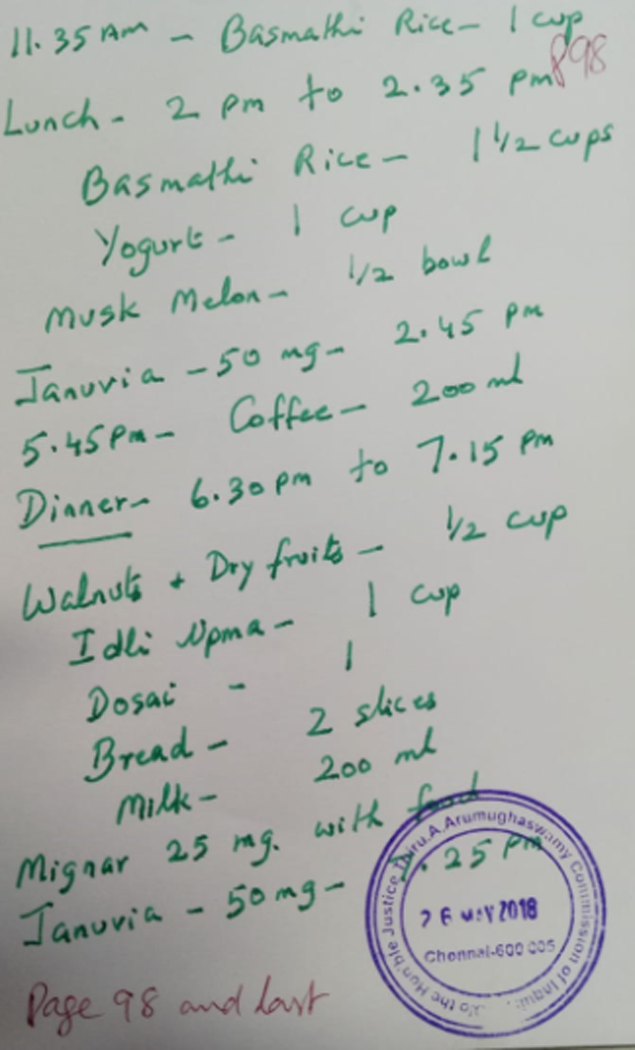 11.35 AM - Basmathi Rice - 1 cup
P98
Lunch - 2 pm to 2.35 pm
Basmathi Rice - 1 1/2 cups
Yogurt - 1 cup
Musk Melon - 1/2 bowl
Januvia - 50 mg - 2.45 pm
5.45 Pm - Coffee - 200 ml
Dinner - 6.30 pm to 7.15 pm
Walnuts + Dry fruits - 1/2 cup
Idli Upma - 1 cup
Dosai - 1
Bread - 2 slices
Milk - 200 ml
Mignar 25 mg. with food
Januvia - 50 mg - 7.25 Pm
Justice Thiru.A.Arumughaswamy Commission of Inquiry
26 MAY 2018
Chennai-600 005
Page 98 and last